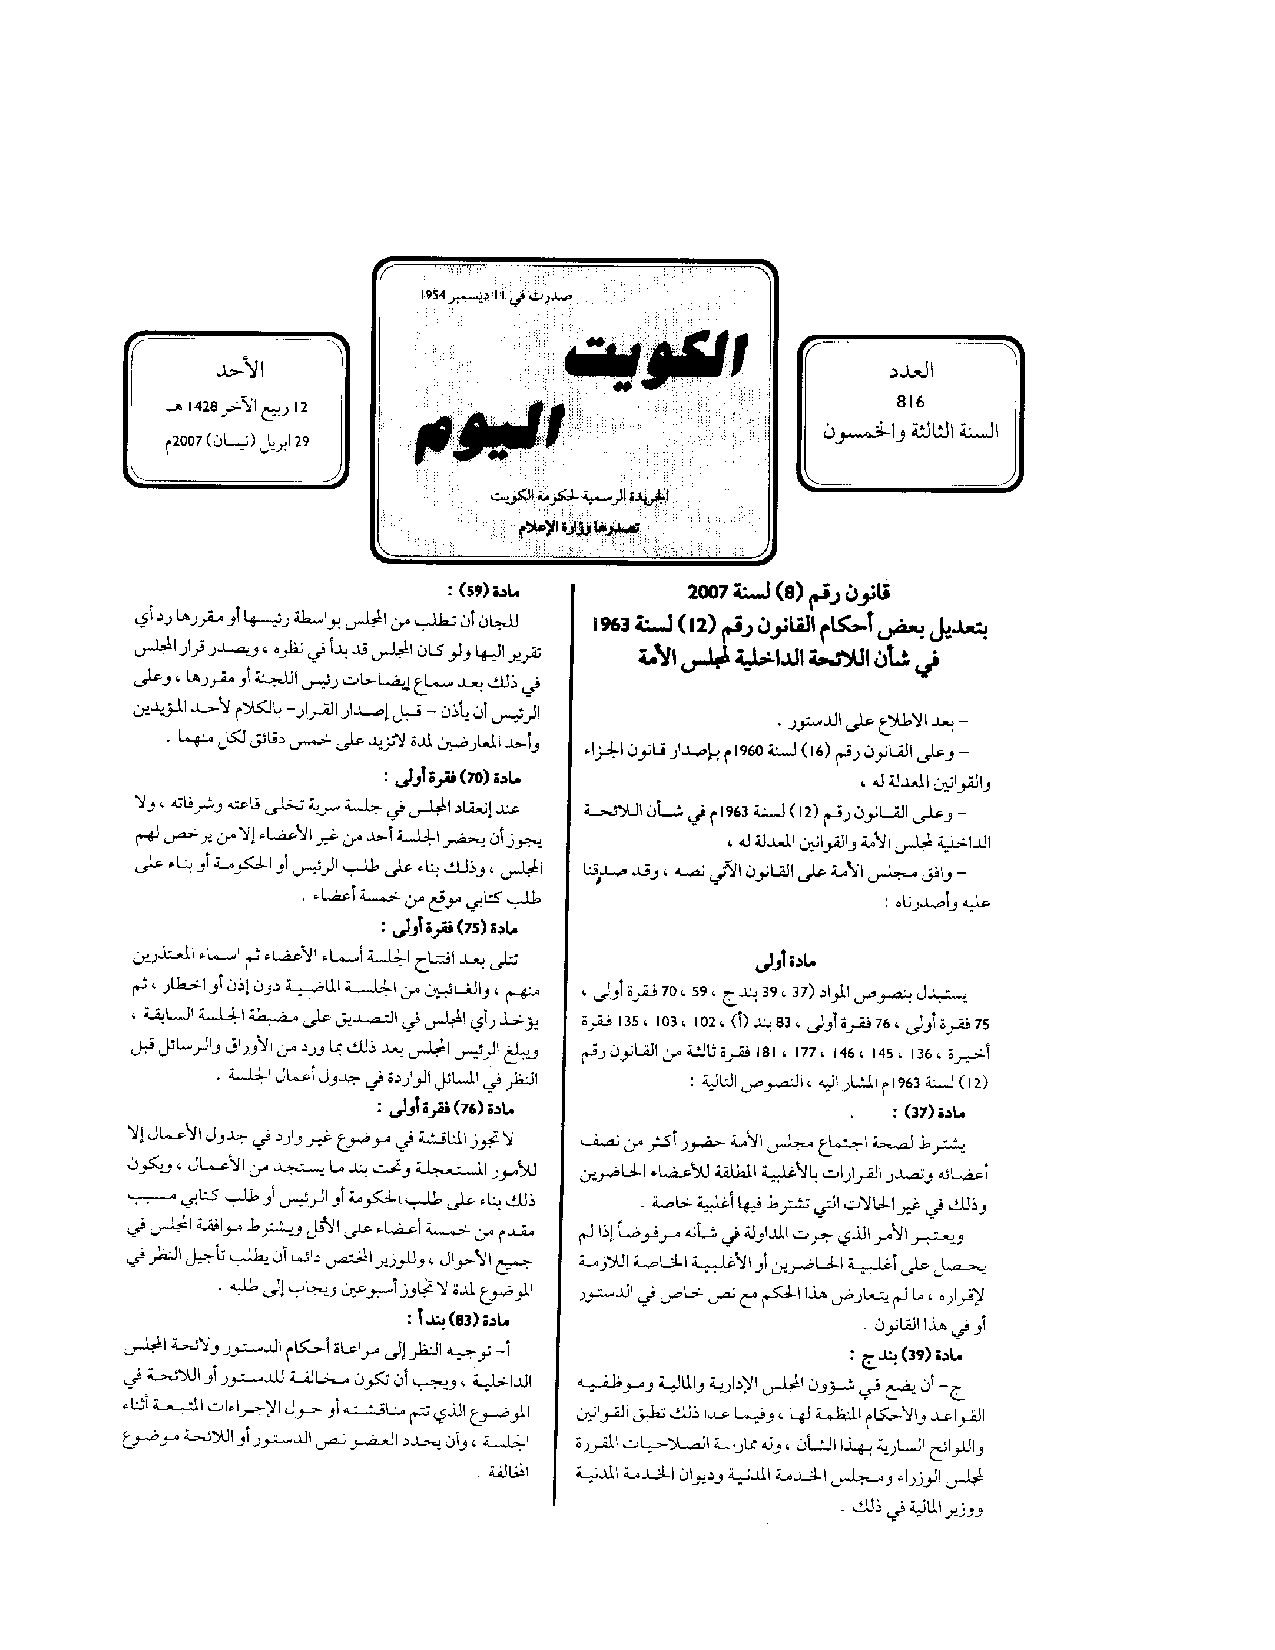 العدد
816
السنة الثالثة والخمسون
صدرت في 11 ديسمبر 1954
الكويت
اليوم
الجريدة الرسمية لحكومة الكويت
تصدرها وزارة الإعلام
الأحد
12 ربيع الآخر 1428 هـ
29 ابريل (نيسان) 2007م
قانون رقم (8) لسنة 2007
بتعديل بعض أحكام القانون رقم (12) لسنة 1963
في شأن اللائحة الداخلية لمجلس الأمة
- بعد الاطلاع على الدستور .
- وعلى القانون رقم (16) لسنة 1960م بإصدار قانون الجزاء
والقوانين المعدلة له ،
- وعلى القانون رقم (12) لسنة 1963م في شأن اللائحة
الداخلية لمجلس الأمة والقوانين المعدلة له ،
- وافق مجلس الأمة على القانون الآتي نصه ، وقد صدقنا
عليه وأصدرناه :
مادة أولى
يستبدل بنصوص المواد (37 ، 39 بند ج ، 59 ، 70 فقرة أولى ،
75 فقرة أولى ، 76 فقرة أولى ، 83 بند (أ) ، 102 ، 103 ، 135 فقرة
أخيرة ، 136 ، 145 ، 146 ، 177 ، 181 فقرة ثالثة من القانون رقم
(12) لسنة 1963م المشار اليه ، النصوص التالية :
مادة (37) :
يشترط لصحة اجتماع مجلس الأمة حضور أكثر من نصف
أعضائه وتصدر القرارات بالأغلبية المطلقة للأعضاء الحاضرين
وذلك في غير الحالات التي تشترط فيها أغلبية خاصة .
ويعتبر الأمر الذي جرت المداولة في شأنه مرفوضاً إذا لم
يحصل على أغلبية الحاضرين أو الأغلبية الخاصة اللازمة
لإقراره ، ما لم يتعارض هذا الحكم مع نص خاص في الدستور
أو في هذا القانون .
مادة (39) بند ج :
ج- أن يضع في شؤون المجلس الإدارية والمالية وموظفيه
القواعد والأحكام المنظمة لها ، وفيما عدا ذلك تطبق القوانين
واللوائح السارية بهذا الشأن ، وله ممارسة الصلاحيات المقررة
لمجلس الوزراء ومجلس الخدمة المدنية وديوان الخدمة المدنية
ووزير المالية في ذلك .
مادة (59) :
للجان أن تطلب من المجلس بواسطة رئيسها أو مقررها رد أي
تقرير اليها ولو كان المجلس قد بدأ في نظره ، ويصدر قرار المجلس
في ذلك بعد سماع إيضاحات رئيس اللجنة أو مقررها ، وعلى
الرئيس أن يأذن - قبل إصدار القرار- بالكلام لأحد المؤيدين
وأحد المعارضين لمدة لاتزيد على خمس دقائق لكل منهما .
مادة (70) فقرة أولى :
عند إنعقاد المجلس في جلسة سرية تخلى قاعته وشرفاته ، ولا
يجوز أن يحضر الجلسة أحد من غير الأعضاء إلا من يرخص لهم
المجلس ، وذلك بناء على طلب الرئيس أو الحكومة أو بناء على
طلب كتابي موقع من خمسة أعضاء .
مادة (75) فقرة أولى :
تتلى بعد افتتاح الجلسة أسماء الأعضاء ثم اسماء المعتذرين
منهم ، والغائبين من الجلسة الماضية دون إذن أو اخطار ، ثم
يؤخذ رأي المجلس في التصديق على مضبطة الجلسة السابقة ،
ويبلغ الرئيس المجلس بعد ذلك بما ورد من الأوراق والرسائل قبل
النظر في المسائل الواردة في جدول أعمال الجلسة .
مادة (76) فقرة أولى :
لا تجوز المناقشة في موضوع غير وارد في جدول الأعمال إلا
للأمور المستعجلة وتحت بند ما يستجد من الأعمال ، ويكون
ذلك بناء على طلب الحكومة أو الرئيس أو طلب كتابي مسبب
مقدم من خمسة أعضاء على الأقل ويشترط موافقة المجلس في
جميع الأحوال ، وللوزير المختص دائما أن يطلب تأجيل النظر في
الموضوع لمدة لا تجاوز أسبوعين ويجاب إلى طلبه .
مادة (83) بند أ :
أ- توجيه النظر إلى مراعاة أحكام الدستور ولائحة المجلس
الداخلية ، ويجب أن تكون مخالفة للدستور أو اللائحة في
الموضوع الذي تتم مناقشته أو حول الإجراءات المتبعة أثناء
الجلسة ، وأن يحدد العضو نص الدستور أو اللائحة موضوع
المخالفة .